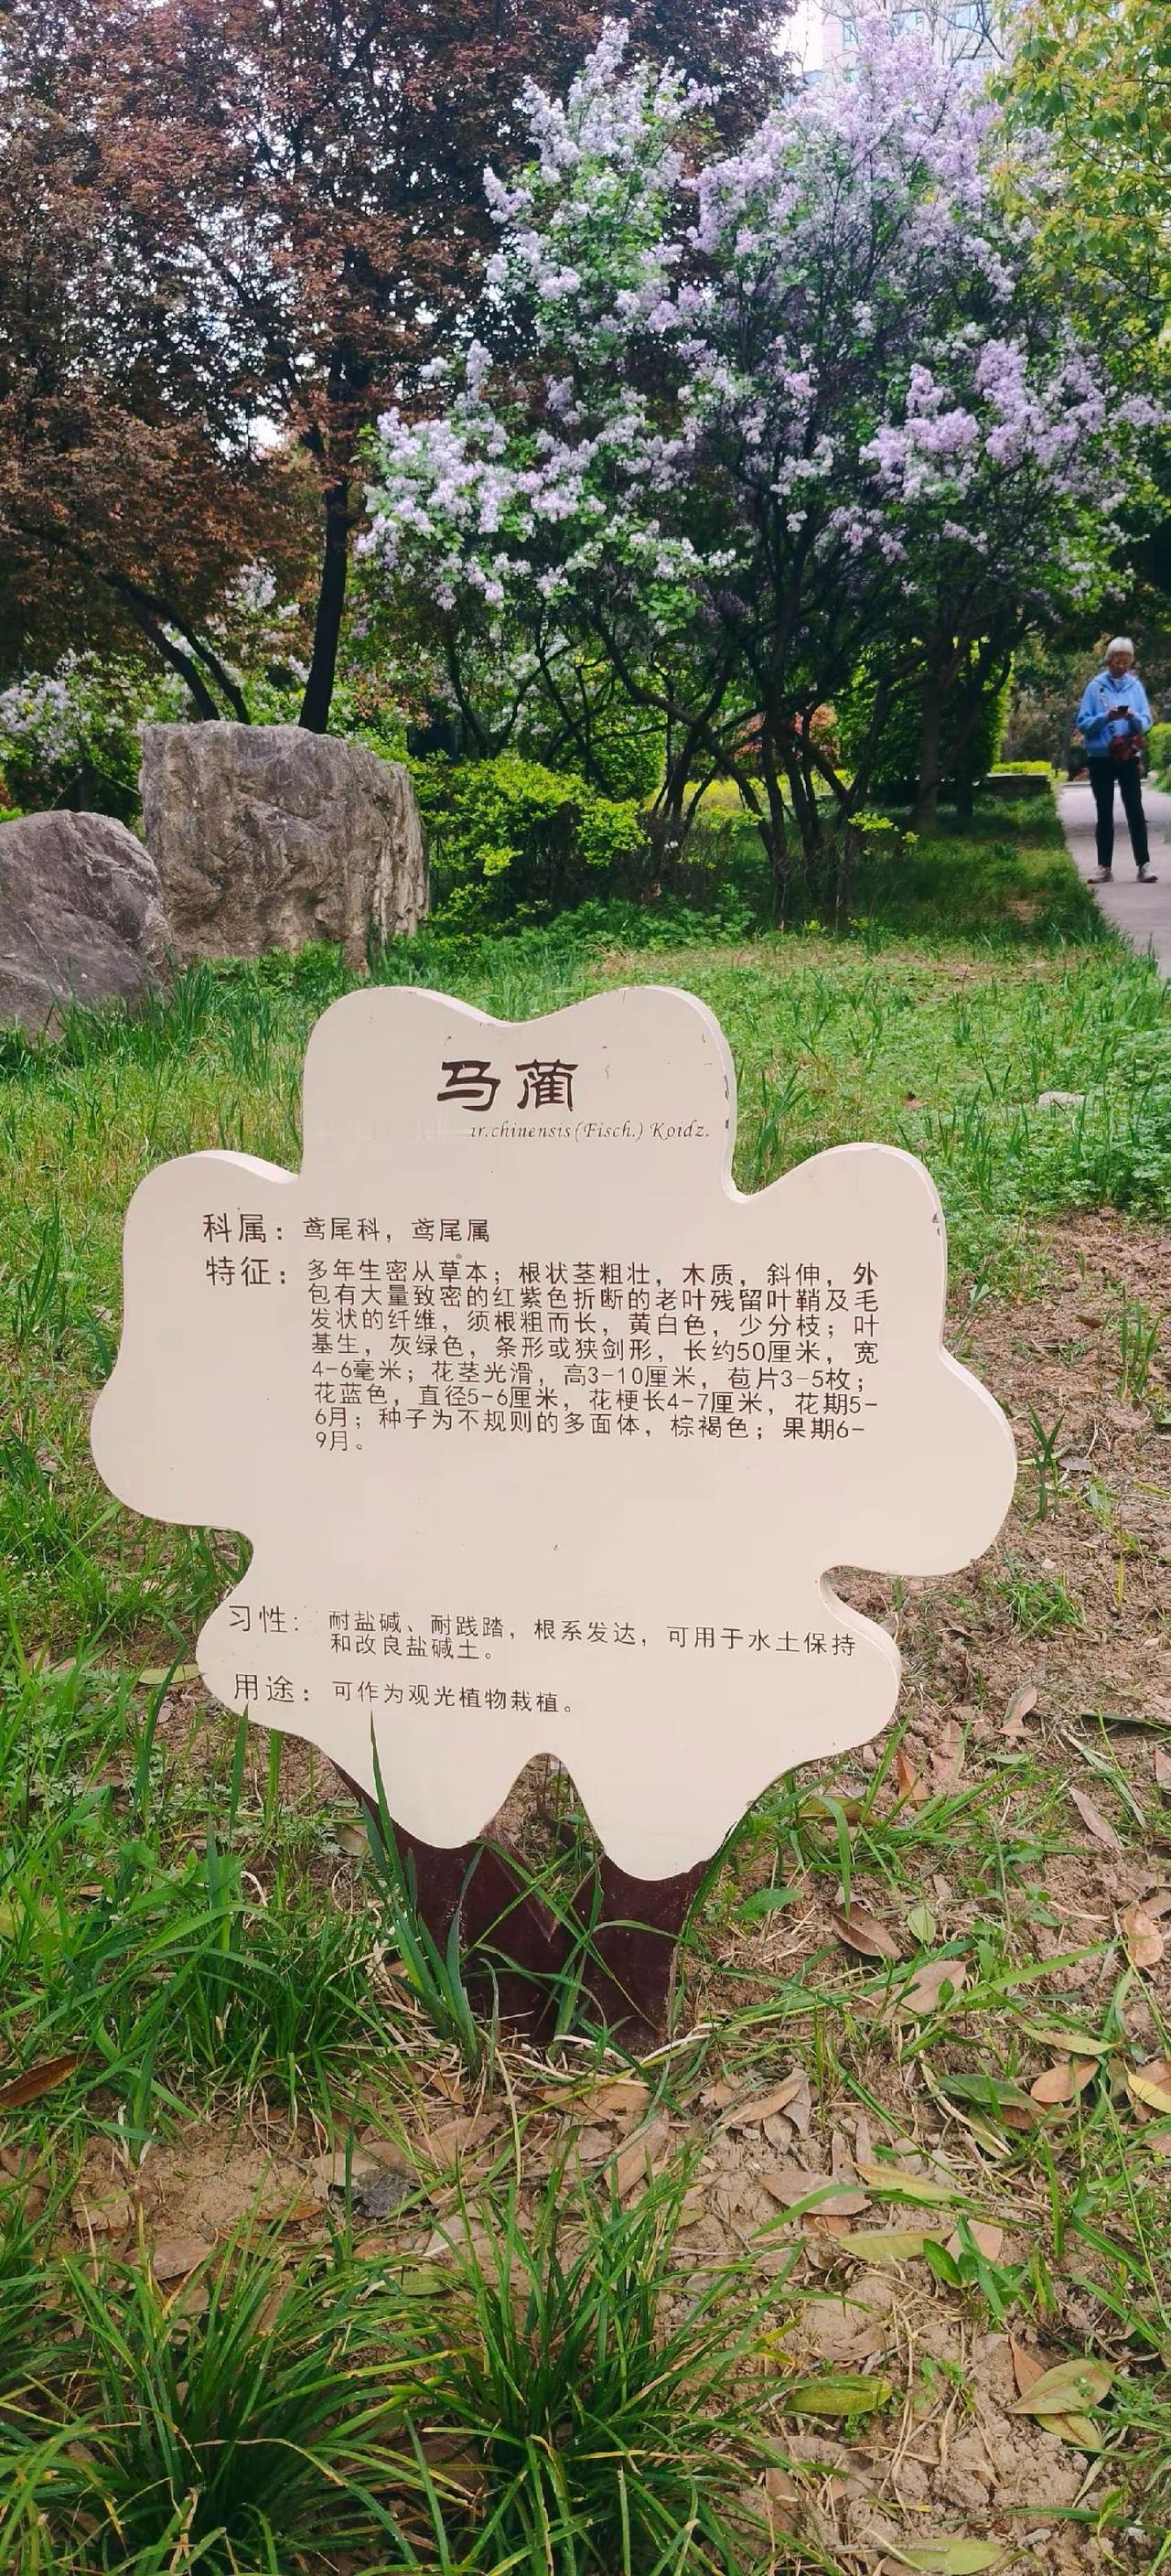 马蔺
ar.chinensis(Fisch.) Koidz.
科属：鸢尾科，鸢尾属
特征：多年生密丛草本；根状茎粗壮，木质，斜伸，外
包有大量致密的红紫色折断的老叶残留叶鞘及毛
发状的纤维，须根粗而长，黄白色，少分枝；叶
基生，灰绿色，条形或狭剑形，长约50厘米，宽
4-6毫米；花茎光滑，高3-10厘米，苞片3-5枚；
花蓝色，直径5-6厘米，花梗长4-7厘米，花期5-
6月；种子为不规则的多面体，棕褐色；果期6-
9月。
习性：耐盐碱、耐践踏，根系发达，可用于水土保持
和改良盐碱土。
用途：可作为观光植物栽植。